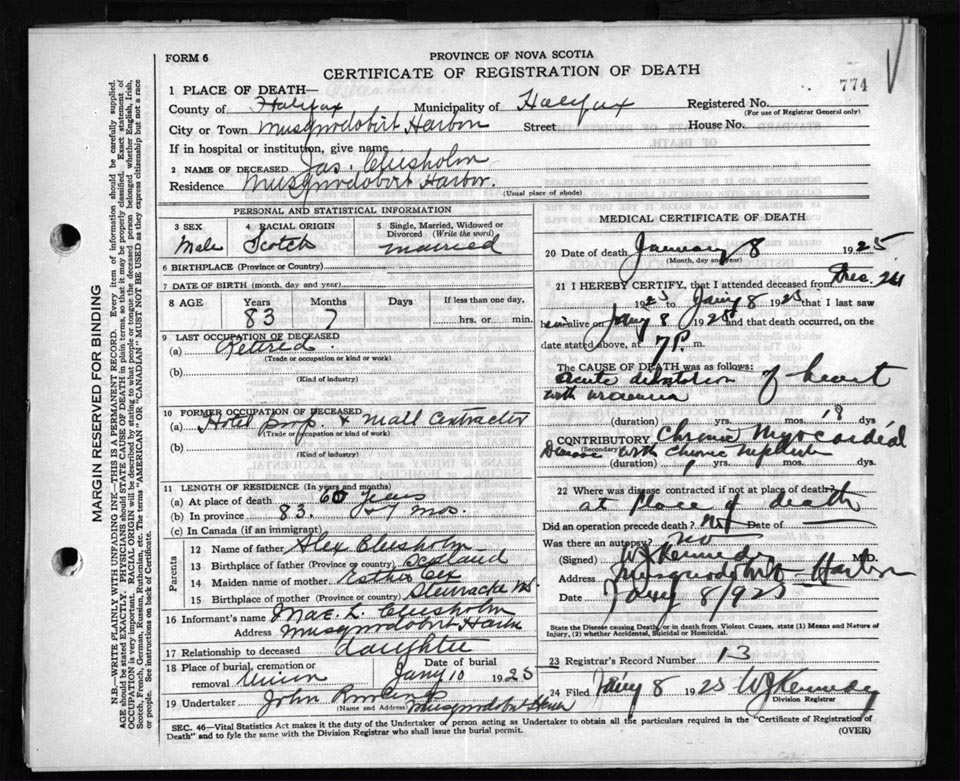 FORM 6
PROVINCE OF NOVA SCOTIA
CERTIFICATE OF REGISTRATION OF DEATH
774
1 PLACE OF DEATH—
County of Halifax Municipality of Halifax Registered No.
(For use of Registrar General only)
City or Town Musquodobirt Harbor Street House No.
If in hospital or institution, give name
2 NAME OF DECEASED Jas. Chisholm
Residence Musquodobirt Harbor.
(Usual place of abode)
PERSONAL AND STATISTICAL INFORMATION
3 SEX 4 RACIAL ORIGIN 5 Single, Married, Widowed or Divorced (Write the word)
Male Scotch married
6 BIRTHPLACE (Province or Country)
7 DATE OF BIRTH (month, day and year)
8 AGE Years Months Days If less than one day,
83 7 hrs. or min.
9 LAST OCCUPATION OF DECEASED
(a) Retired
(Trade or occupation or kind or work)
(b)
(Kind of industry)
10 FORMER OCCUPATION OF DECEASED
(a) Hotel prop. & Mall Contracter
(Trade or occupation or kind of work)
(b)
(Kind of industry)
11 LENGTH OF RESIDENCE (In years and months)
(a) At place of death 60 Years
(b) In province 83. & 7 mos.
(c) In Canada (if an immigrant)
Parents
12 Name of father Alex Chisholm
13 Birthplace of father (Province or country) Scotland
14 Maiden name of mother Esther
15 Birthplace of mother (Province or country)
16 Informant's name Mae L. Chisholm
Address Musquodobirt Harbor
17 Relationship to deceased daughter
18 Place of burial, cremation or removal Union Date of burial Jany 10 1925
19 Undertaker John Rowlings
(Name and Address) Musquodobirt Harbor
MEDICAL CERTIFICATE OF DEATH
20 Date of death January 8 1925
(Month, day and year)
21 I HEREBY CERTIFY, that I attended deceased from Dec. 24
1925 to Jany 8 1925 that I last saw
him alive on Jany 8 1925 and that death occurred, on
date stated above, at 7 P. m.
The CAUSE OF DEATH was as follows:
acute dilatation of heart
with uraemia
(duration) yrs. mos. 18 dys
CONTRIBUTORY Chronic Myocardial
(Secondary)
Disease with Chronic nephritis
(duration) yrs. mos. dys.
22 Where was disease contracted if not at place of death?
at place of death
Did an operation precede death? No Date of
Was there an autopsy? No
(Signed) W J Kennedy M.D.
Address Musquodoboit Harbor
Date Jany 8/925
State the Disease causing Death, or in death from Violent Causes, state (1) Means and Nature of Injury, (2) whether Accidental, Suicidal or Homicidal.
23 Registrar's Record Number 13
24 Filed Jany 8 1925 W J Kennedy
Division Registrar
SEC. 46—Vital Statistics Act makes it the duty of the Undertaker or person acting as Undertaker to obtain all the particulars required in the "Certificate of Registration of
Death" and to fyle the same with the Division Registrar who shall issue the burial permit.
(OVER)
MARGIN RESERVED FOR BINDING
N.B.—WRITE PLAINLY WITH UNFADING INK—THIS IS A PERMANENT RECORD. Every item of information should be carefully supplied.
AGE should be stated EXACTLY. PHYSICIANS should STATE CAUSE OF DEATH in plain terms, so that it may be properly classified. Exact statement of
OCCUPATION is very important. RACIAL ORIGIN will be described by stating to what people or tongue the deceased person belonged whether English, Irish,
Scotch, French, German, Russian, Ruthenian, etc. The terms "AMERICAN" OR "CANADIAN" MUST NOT BE USED as they express citizenship but not a race
or people. See instructions on back of Certificate.